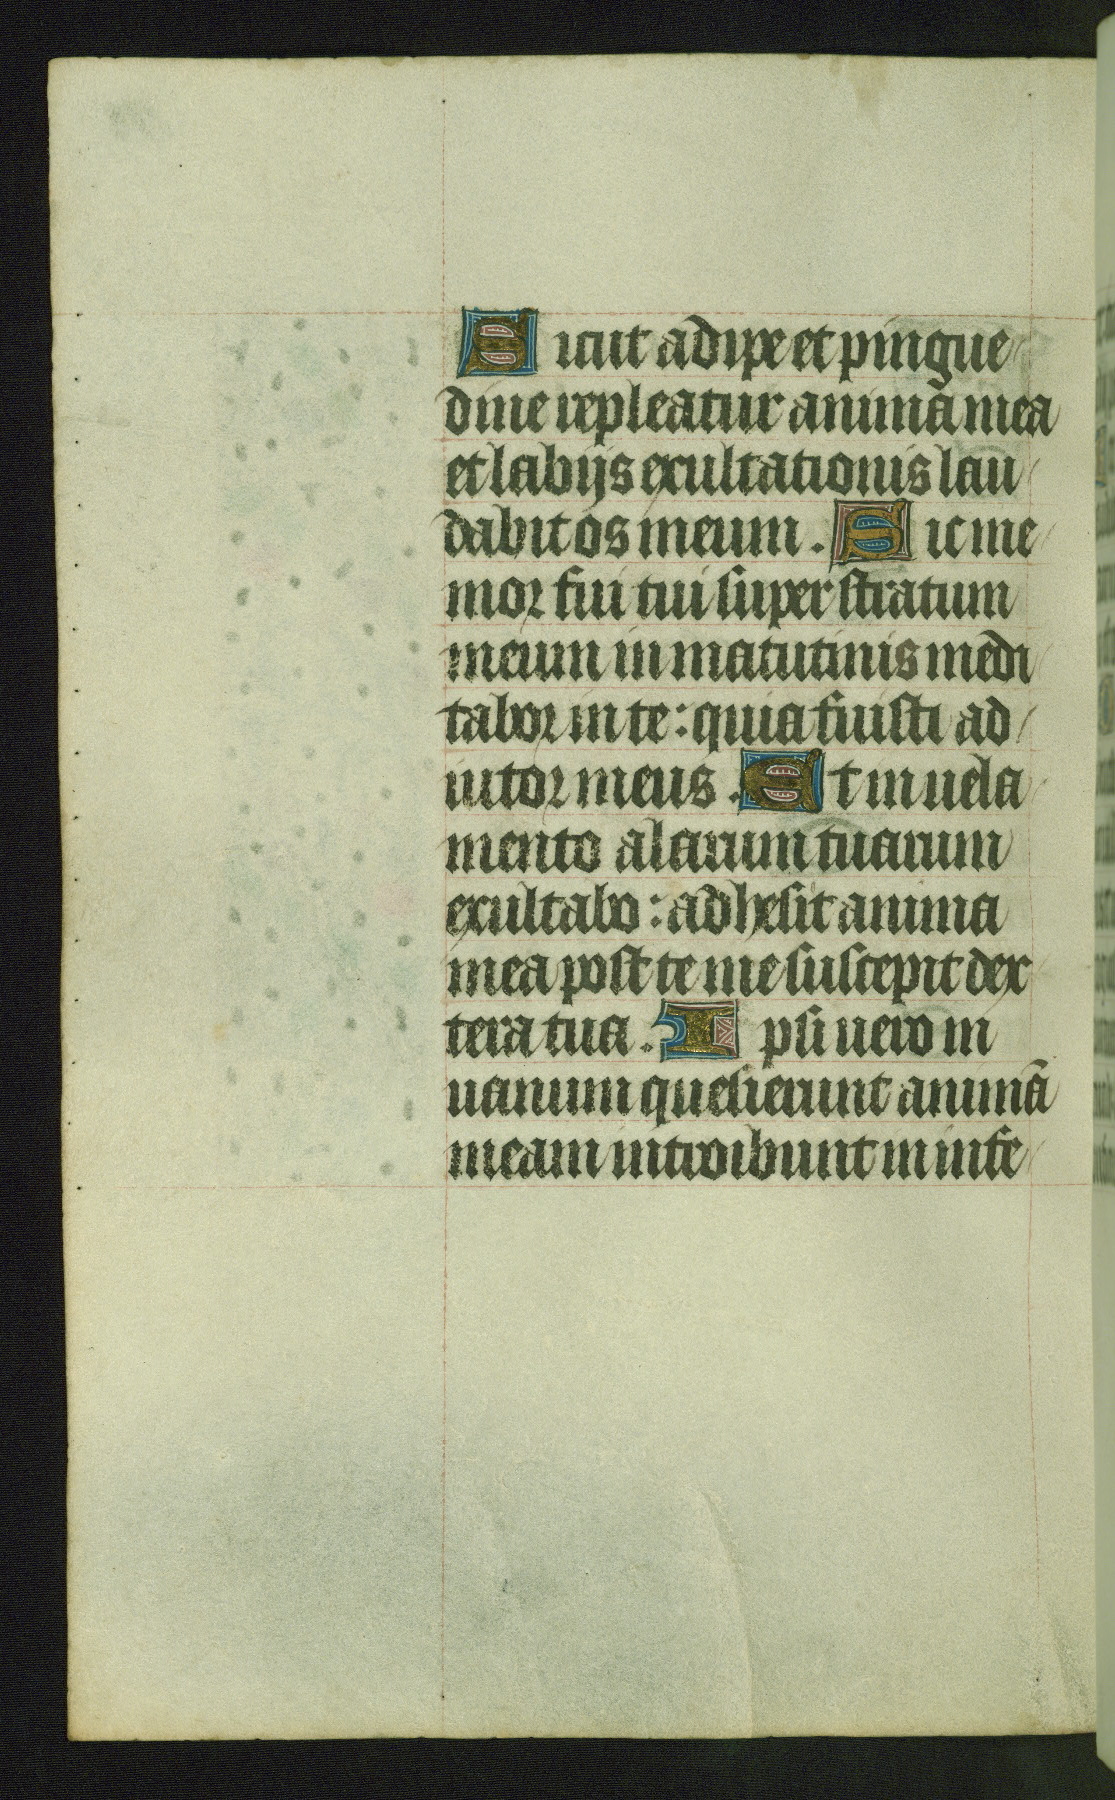 Sicut adipe et pingue
dine repleatur animā mea
et labijs exultationis lau
dabit os meum. Sic me
mor fui tui super stratum
meum in matutinis medi
tabor in te: quia fuisti ad
iutor meus. Et in uela
mento alarum tuarum
exultabo: adhesit anima
mea post te me suscepit dex
tera tua. Ipsi uero in
uanum quesierunt animā
meam introibunt in infe